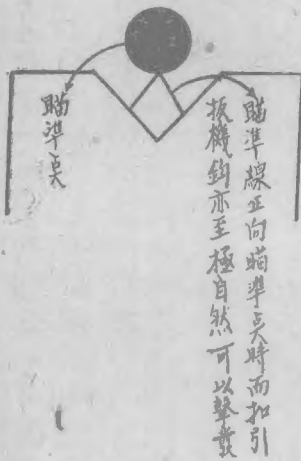 瞄準線正向瞄準点時而扣引
扳機鈎亦至極自然可以擊發
瞄準点